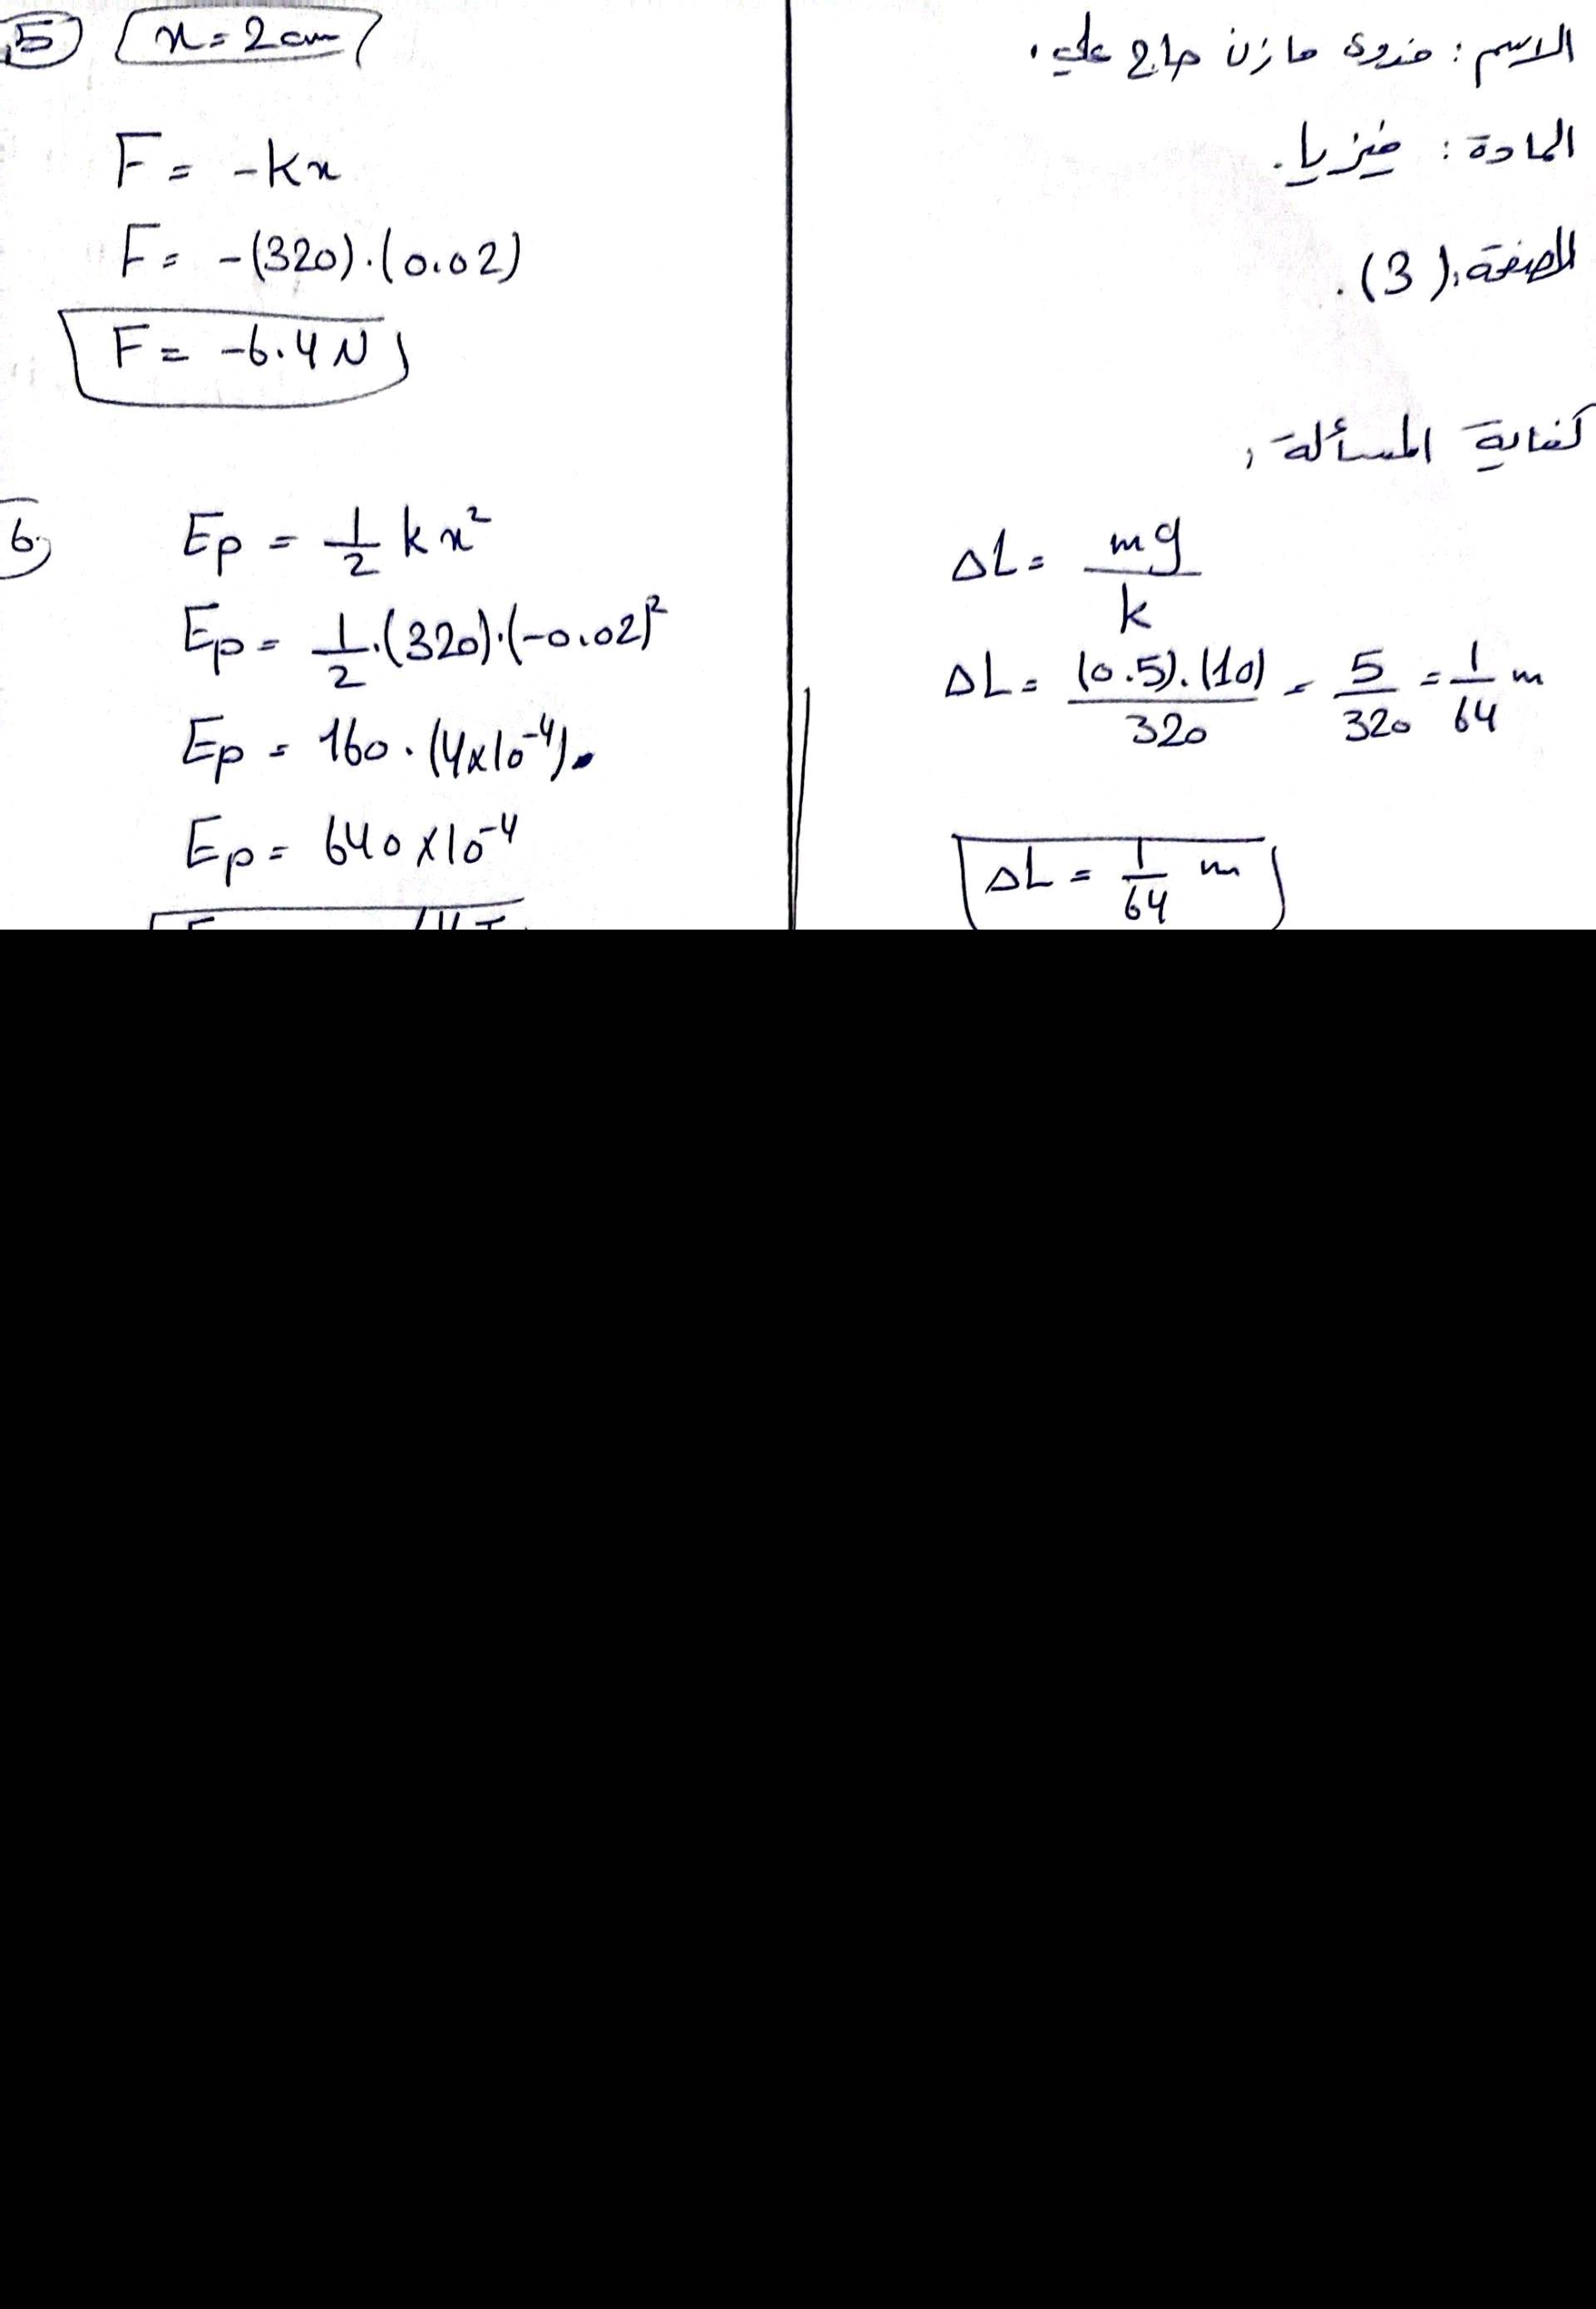 الاسم: فدوى مازن حاج علي.
المادة: فيزيا.
الصفحة: (3).
كفاية المسألة,
ΔL = mg / k
ΔL = (0.5).(10) / 320 = 5 / 320 = 1 / 64 m
ΔL = 1 / 64 m
5 x = 2 cm
F = -kx
F = -(320).(0.02)
F = -6.4 N
6 Ep = 1/2 k x²
Ep = 1/2.(320).(-0.02)²
Ep = 160.(4x10⁻⁴).
Ep = 640 x 10⁻⁴